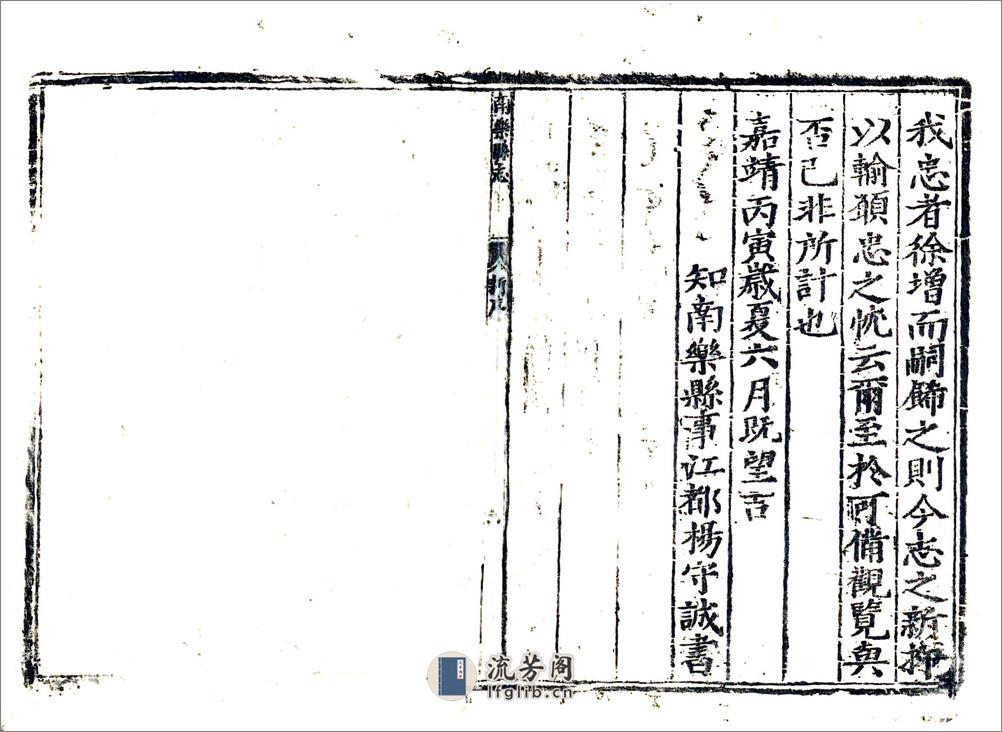 我忠者徐增而嗣飾之則今志之新抑
以輸願忠之忱云爾至於可備觀覽與
否已非所計也
嘉靖丙寅歲夏六月既望吉
知南樂縣事江都楊守誠書
南樂縣志
流芳阁
lfglib.cn